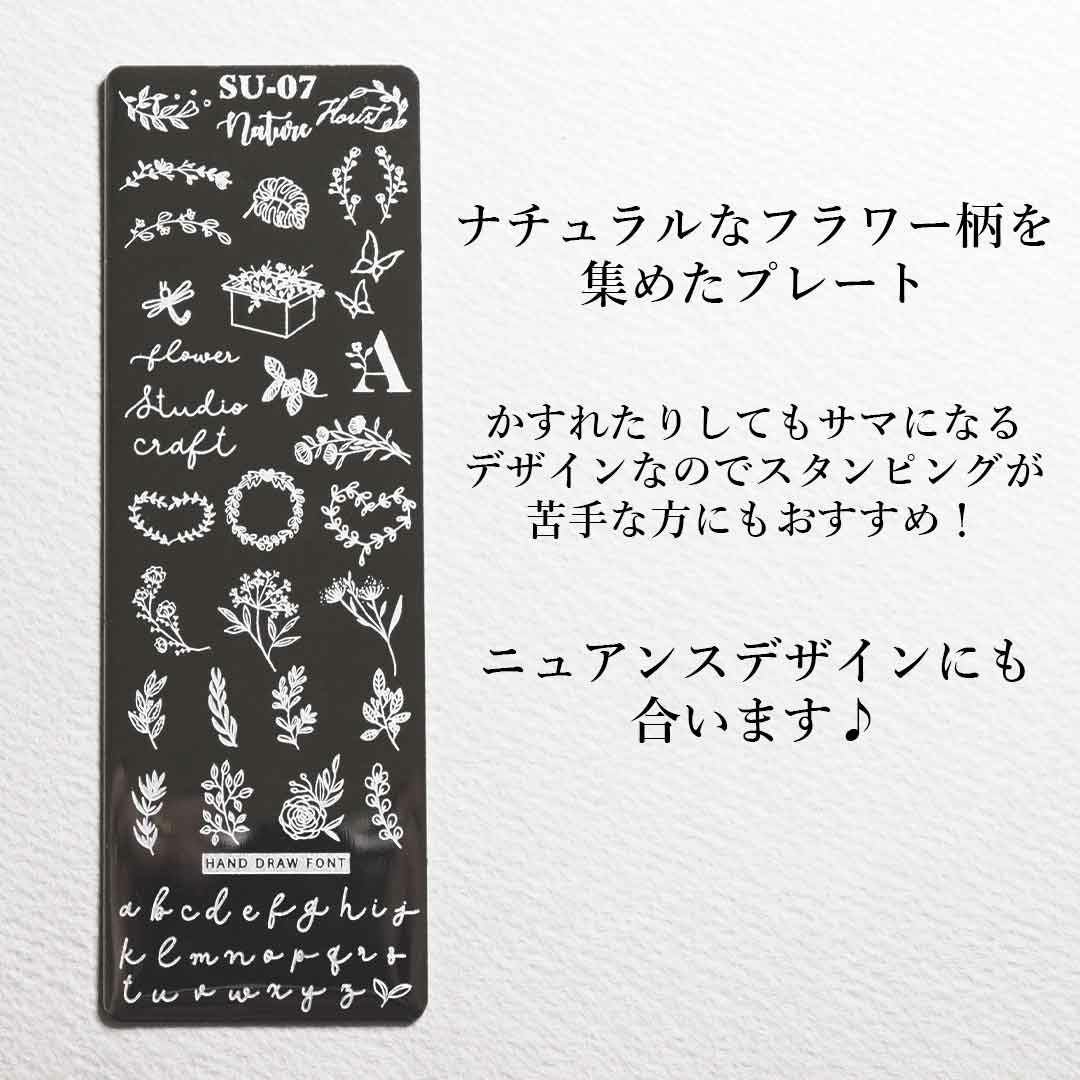 SU-07
Nature
Florist
flower
Studio
craft
A
HAND DRAW FONT
a b c d e f g h i j
k l m n o p q r s
t u v w x y z
ナチュラルなフラワー柄を
集めたプレート
かすれたりしてもサマになる
デザインなのでスタンピングが
苦手な方にもおすすめ！
ニュアンスデザインにも
合います♪